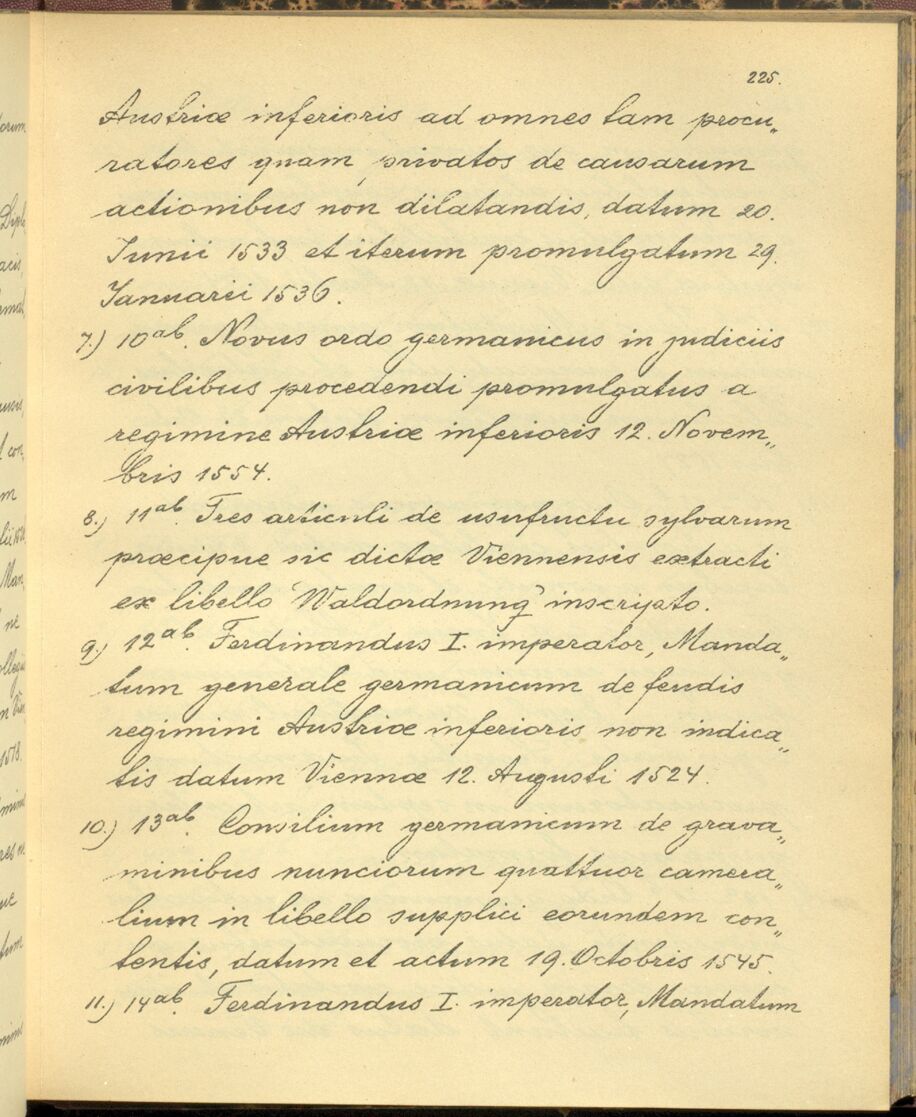 225.
Austriæ inferioris ad omnes tam procu„
ratores quam privatos de causarum
actionibus non dilatandis, datum 20.
Junii 1533 et iterum promulgatum 29.
Januarii 1536.
7.) 10ab. Novus ordo germanicus in judiciis
civilibus procedendi promulgatus a
regimine Austriæ inferioris 12. Novem„
bris 1554.
8.) 11ab. Tres articuli de usufructu sylvarum
præcipue sic dictæ Viennensis extracti
ex libello 'Waldordnung' inscripto.
9.) 12ab. Ferdinandus I. imperator, Manda„
tum generale germanicum de feudis
regimini Austriæ inferioris non indica„
tis datum Viennæ 12. Augusti 1524.
10.) 13ab. Consilium germanicum de grava„
minibus nunciorum quattuor camera„
lium in libello supplici eorundem con„
tentis, datum et actum 19. Octobris 1545.
11.) 14ab. Ferdinandus I. imperator, Mandatum